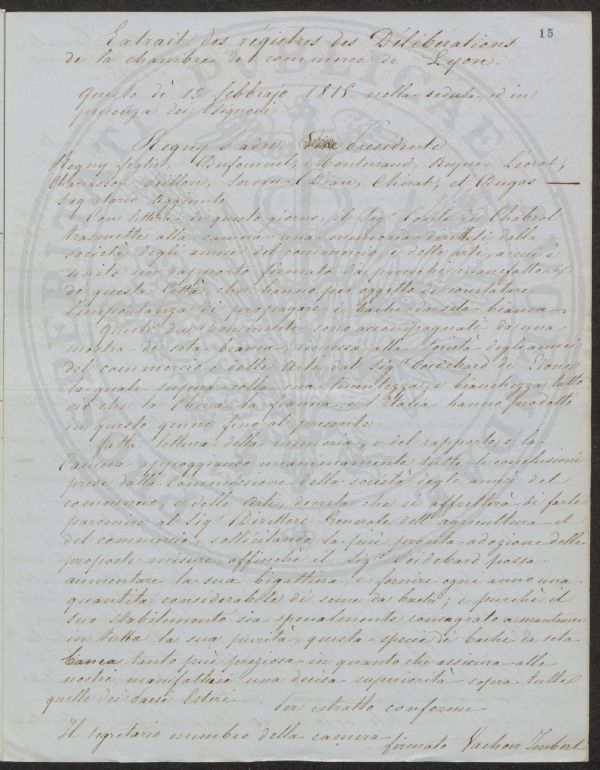 15
Extrait des régistres des Délibérations
de la chambre de commerce de Lyon.
Questo dì 12 febbrajo 1818 nella seduta, ed in
presenza dei Signori
Regny Padre, Presidente
Regny figlio, Dufournel, Monterrad,
Charasson, Dian, Chirat, et Dugas
Segretario Aggiunto
Con lettera di questo giorno, il Sigr Conte di Chabrol
trasmette alla camera una memoria dalla
società degli amici del commercio, e delle arti, a cui è
unito un rapporto firmato da parecchi manifattori
di questa Città, che hanno per oggetto di constatare
l'importanza di propagare i bachi da seta bianca.
Questi due documenti sono accompagnati da una
mostra di seta bianca, rimessa alla società degli amici
del commercio e delle Arti, dal Sigr Poidebard di Lione
la quale supera colla sua lucentezza, e bianchezza tutto
ciò che la China la francia, e l'Italia hanno prodotto
in questo genere fino al presente.
Fatta lettura della memoria, e del rapporto, e la
Camera appoggiando unanimamente tutte le conclusioni
prese dalla Commissione della società degli amici del
commercio, e delle Arti, decreta che si affretterà di farle
pervenire al Sigr Direttore Generale dell'agricultura e
del commercio, sollicitando la più pronta adozione delle
proposte misure, affinchè il Sigr Poidebard possa
aumentare la sua bigattiera, e fornire ogni anno una
quantità considerabile di seme da bachi; e purchè il
suo stabilimento sia specialmente consagrato a mantenere
in tutta la sua purità, questa specie di bachi da seta
bianca, tanto più preziosa in quanto che assicura alle
nostre manifatture una decisa superiorità sopra tutte
quelle dei paesi Esteri. Per estratto conforme
Il segretario membro della camera
firmato Vachon Imbert